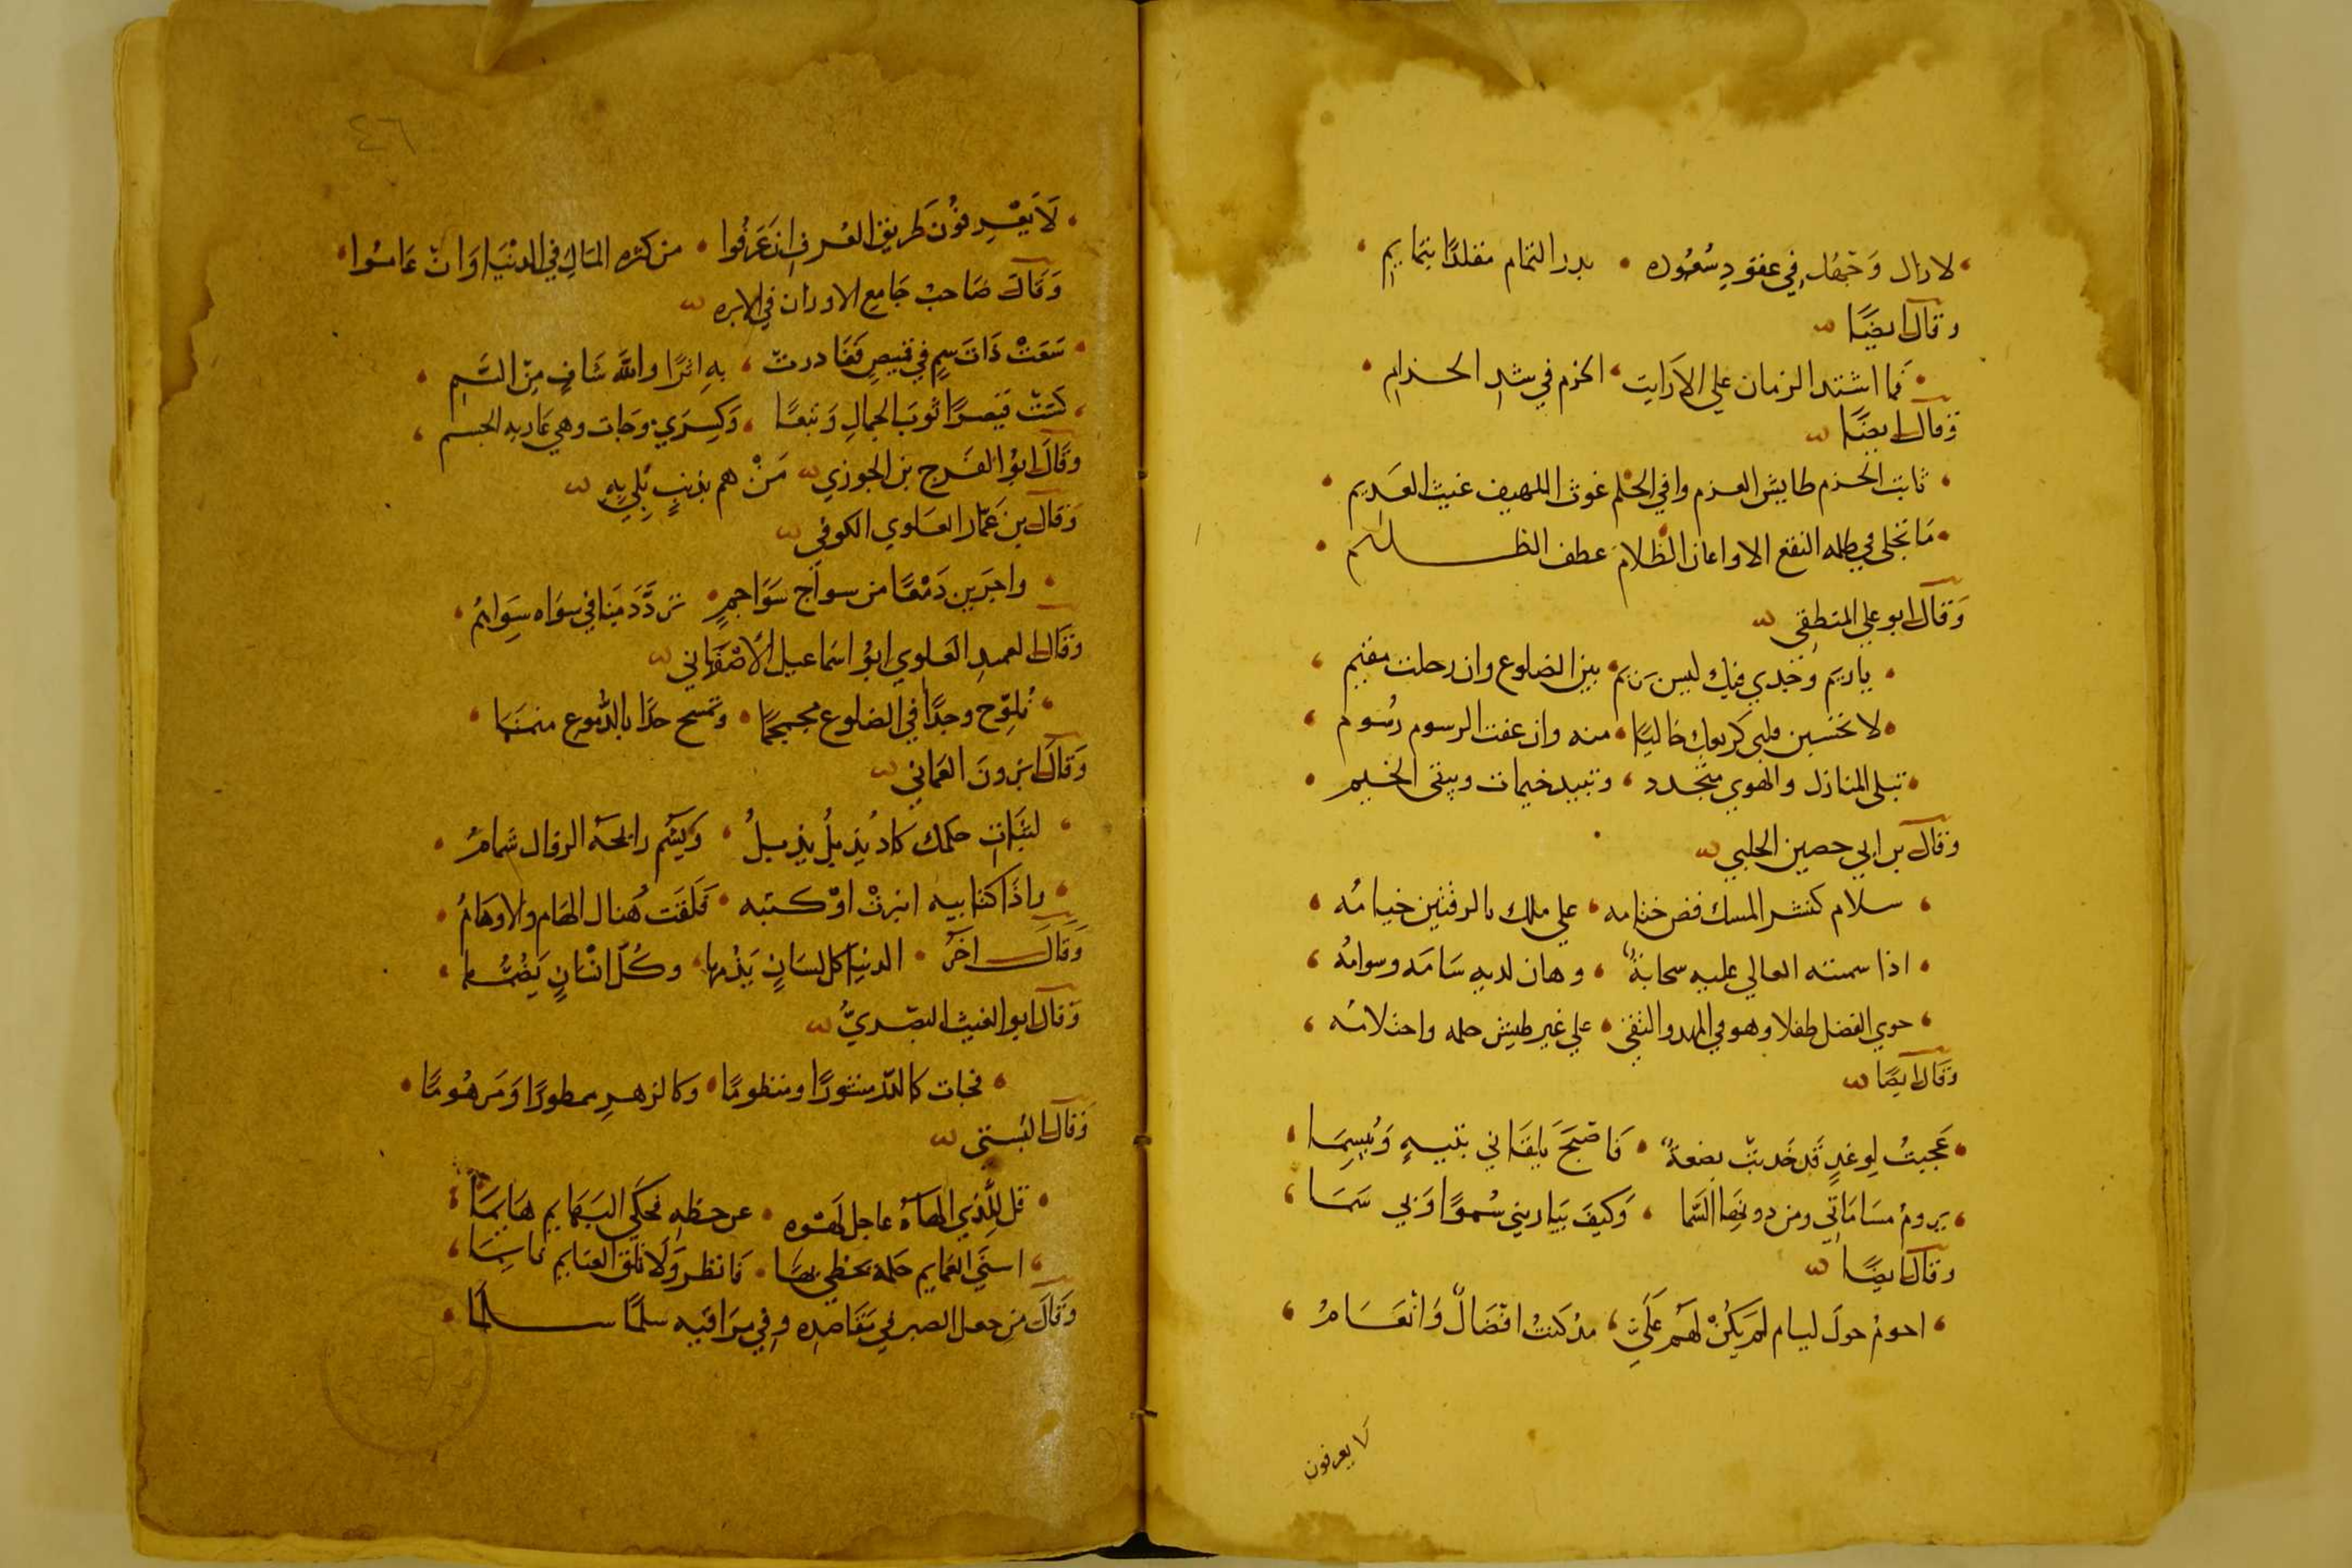 لازال وجهك في عقود سعوده • بدر التمام مقلدا بتمايم
وقال ايضا
فما اشتد الزمان علي الا رايت الحزم في شد الحزام
وقال ايضا
ثابت الحزم طايش العزم وافي الحلم غوث اللهيف غيث العديم
ما تجلى في ظلمه النقع الا واعان الظلام عطف الظليم
وقال ابو علي المنطقي
ياريم وجدي فيك ليس يريم • بين الضلوع وان رحلت مقيم
لا تحسبن قلبي كربعك خاليا • منه وان عفت الرسوم رسوم
تبلى المنازل والهوي متجدد • وتبيد خيمات ويبقى الخيم
وقال بن ابي حصين الحلبي
سلام كنشر المسك فض ختامه • علي ملك بالرقتين خيامه
اذا سمته العالي عليه سحابة • وهان لديه سامه وسوامه
حوي الفضل طفلا وهو في المهد والتقى • علي غير طيش حلمه واحتلامه
وقال ايضا
عجبت لوغد قد جذبت بضعة • فاصبح يلقاني بتيه وييسما
يروم مساماتي ومن دونها السما • وكيف يباريني سموا وبي سما
وقال ايضا
احوم حول ليام لم يكن لهم علي مذ كنت افضال وانعام
لا يعرفون
٤٦
لا يعرفون طريق العرف ان عرفوا • من كثره المال في الدنيا وان عاموا
وقال صاحب جامع الاوزان في الابره
سعت ذات سم في قميص فغادرت • به اثرا والله شاف من السم
كست قيصرا ثوب الجمال وتبعا • وكسري وجات وهي عاريه الجسم
وقال ابو الفرج بن الجوزي من هم بذنب بلي به
وقال بن عمار العلوي الكوفي
واجرين دمعا من سواج سواجم • تردد فينا في سواه سوايم
وقال العميد العلوي ابو اسماعيل الاصفهاني
تلوح وجدا في الضلوع مجمجما • وتمسح خدا بالدموع منمنما
وقال ابزون العماني
لثبات حكمك كاد يذبل يذبل • ويشم رايحة الزوال شمام
واذا كتابيه انبرت او كتبه • فلقت هنالك الهام والاوهام
وقال اخر • الدنيا كل لسان يذمها وكل انسان يضمها
وقال ابو الغيث البصري
فجات كالدر منثورا ومنظوما • وكالزهر ممطورا ومرهوما
وقال البستي
قل للذي الهاه عاجل لهوه • عن حظه فحكى البهايم هايما
اسني الغمايم حلمة يحظي بها • فانظر ولا تلق الغنايم نايما
وقال من جعل الصبر في مقاصده وفي مراقيه سلما سلما